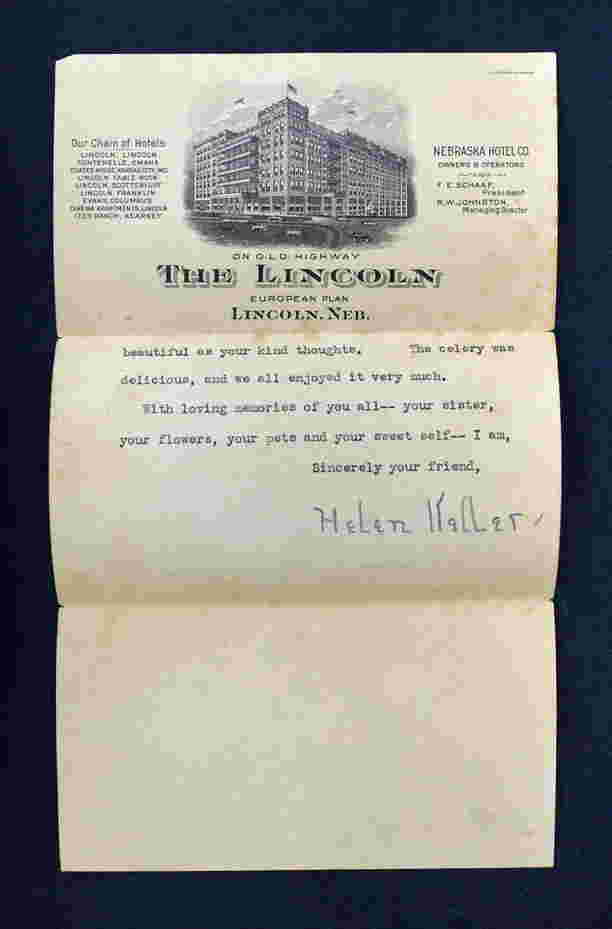 Our Chain of Hotels
LINCOLN, LINCOLN
FONTENELLE, OMAHA
COATES HOUSE, KANSAS CITY, MO.
LINCOLN, TABLE ROCK
LINCOLN, SCOTTSBLUFF
LINCOLN, FRANKLIN
EVANS, COLUMBUS
APARTMENTS, LINCOLN
RANCH, KEARNEY
NEBRASKA HOTEL CO.
OWNERS & OPERATORS
F. E. SCHAAF,
President
R.W. JOHNSTON,
Managing Director
ON O.L.D. HIGHWAY
THE LINCOLN
EUROPEAN PLAN
LINCOLN, NEB.
beautiful as your kind thoughts. The celery was
delicious, and we all enjoyed it very much.
With loving memories of you all-- your sister,
your flowers, your pets and your sweet self-- I am,
Sincerely your friend,
Helen Keller